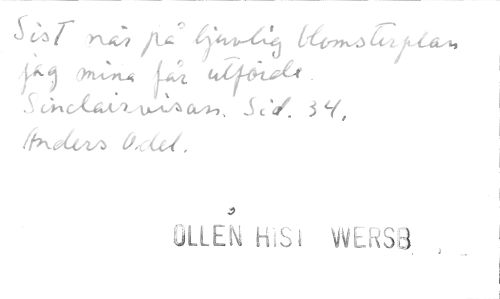 Sist när på ljuvlig blomsterplan
jag mina får utförde.
Sinclairvisan. Sid. 34.
Anders Odel.
OLLÉN HIST WERSB